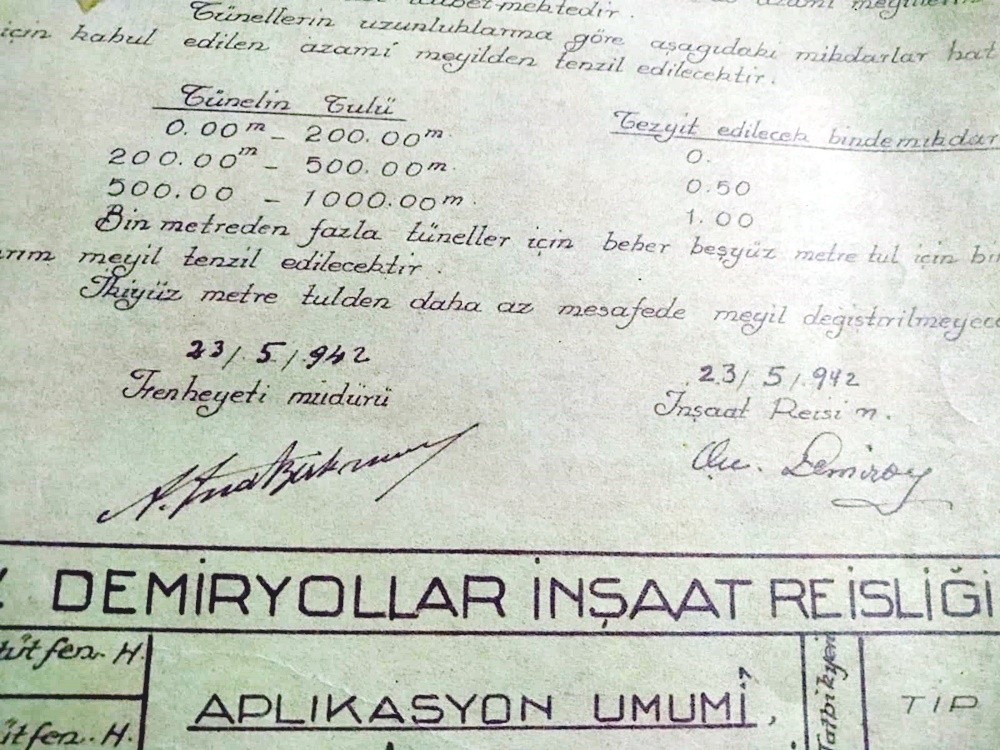 Tünellerin uzunluklarına göre aşagıdaki mikdarlar hat
için kabul edilen azami meyilden tenzil edilecektir.
Tünelin Tulü
Tezyit edilecek binde mikdar
0.00m - 200.00m.
0.
200.00m - 500.00m.
0.50
500.00 - 1000.00m.
1.00
Bin metreden fazla tüneller için beher beşyüz metre tul için bir
meyil tenzil edilecektir.
İkiyüz metre tulden daha az mesafede meyil degıstirilmeyece
23/5/942
23/5/942
Fenheyeti müdürü
İnşaat Reisi n.
Demiray
DEMİRYOLLAR İNŞAAT REİSLİĞİ
fen. H.
APLIKASYON UMUMİ,
Tatbikyeri
TİP
fen. H.